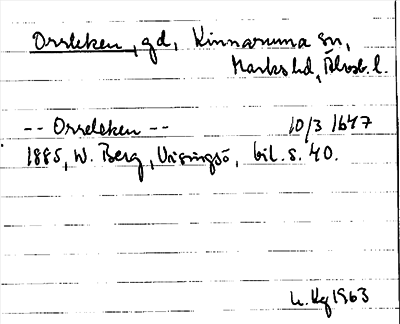 Orrleken, gd, Kinnaruma sn,
Marks hd, Älvsb. l.
-- Orreleken -- 10/3 1647
1885, W. Berg, Visingsö, bil. s. 40.
1963